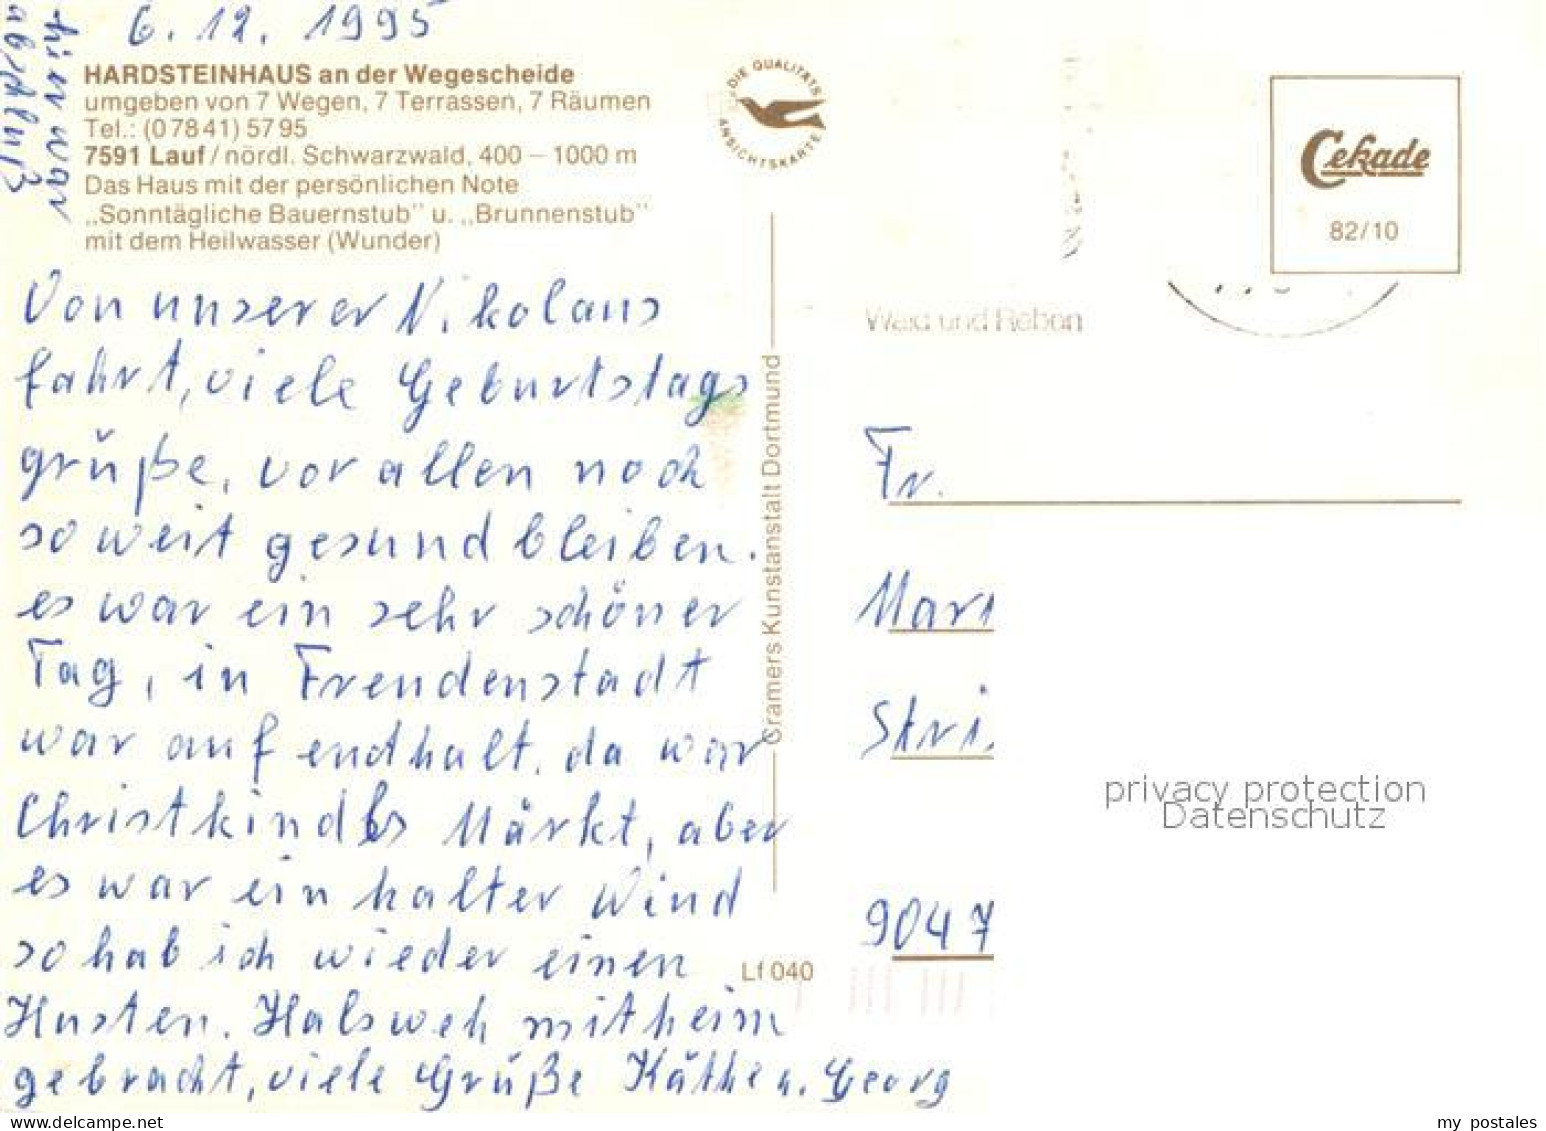 6. 12. 1995
hier war
abschluß
HARDSTEINHAUS an der Wegescheide
umgeben von 7 Wegen, 7 Terrassen, 7 Räumen
Tel.: (0 78 41) 57 95
7591 Lauf / nördl. Schwarzwald, 400 – 1000 m
Das Haus mit der persönlichen Note
„Sonntägliche Bauernstub" u. „Brunnenstub"
mit dem Heilwasser (Wunder)
DIE QUALITÄTS
ANSICHTSKARTE
Cekade
82/10
Wald und Reben
Von unserer Nikolaus
fahrt, viele Geburtstags
grüße, vor allen noch
so weit gesund bleiben.
es war ein sehr schöner
Tag, in Freudenstadt
war aufendhalt, da war
Christkindles Märkt, aber
es war ein kalter Wind
so hab ich wieder einen
Husten. Halsweh mitheim
gebracht, viele Grüße Käthe u. Georg
Cramers Kunstanstalt Dortmund
Lf 040
Fr.
Mari
Stri.
9047
privacy protection
Datenschutz
my postales